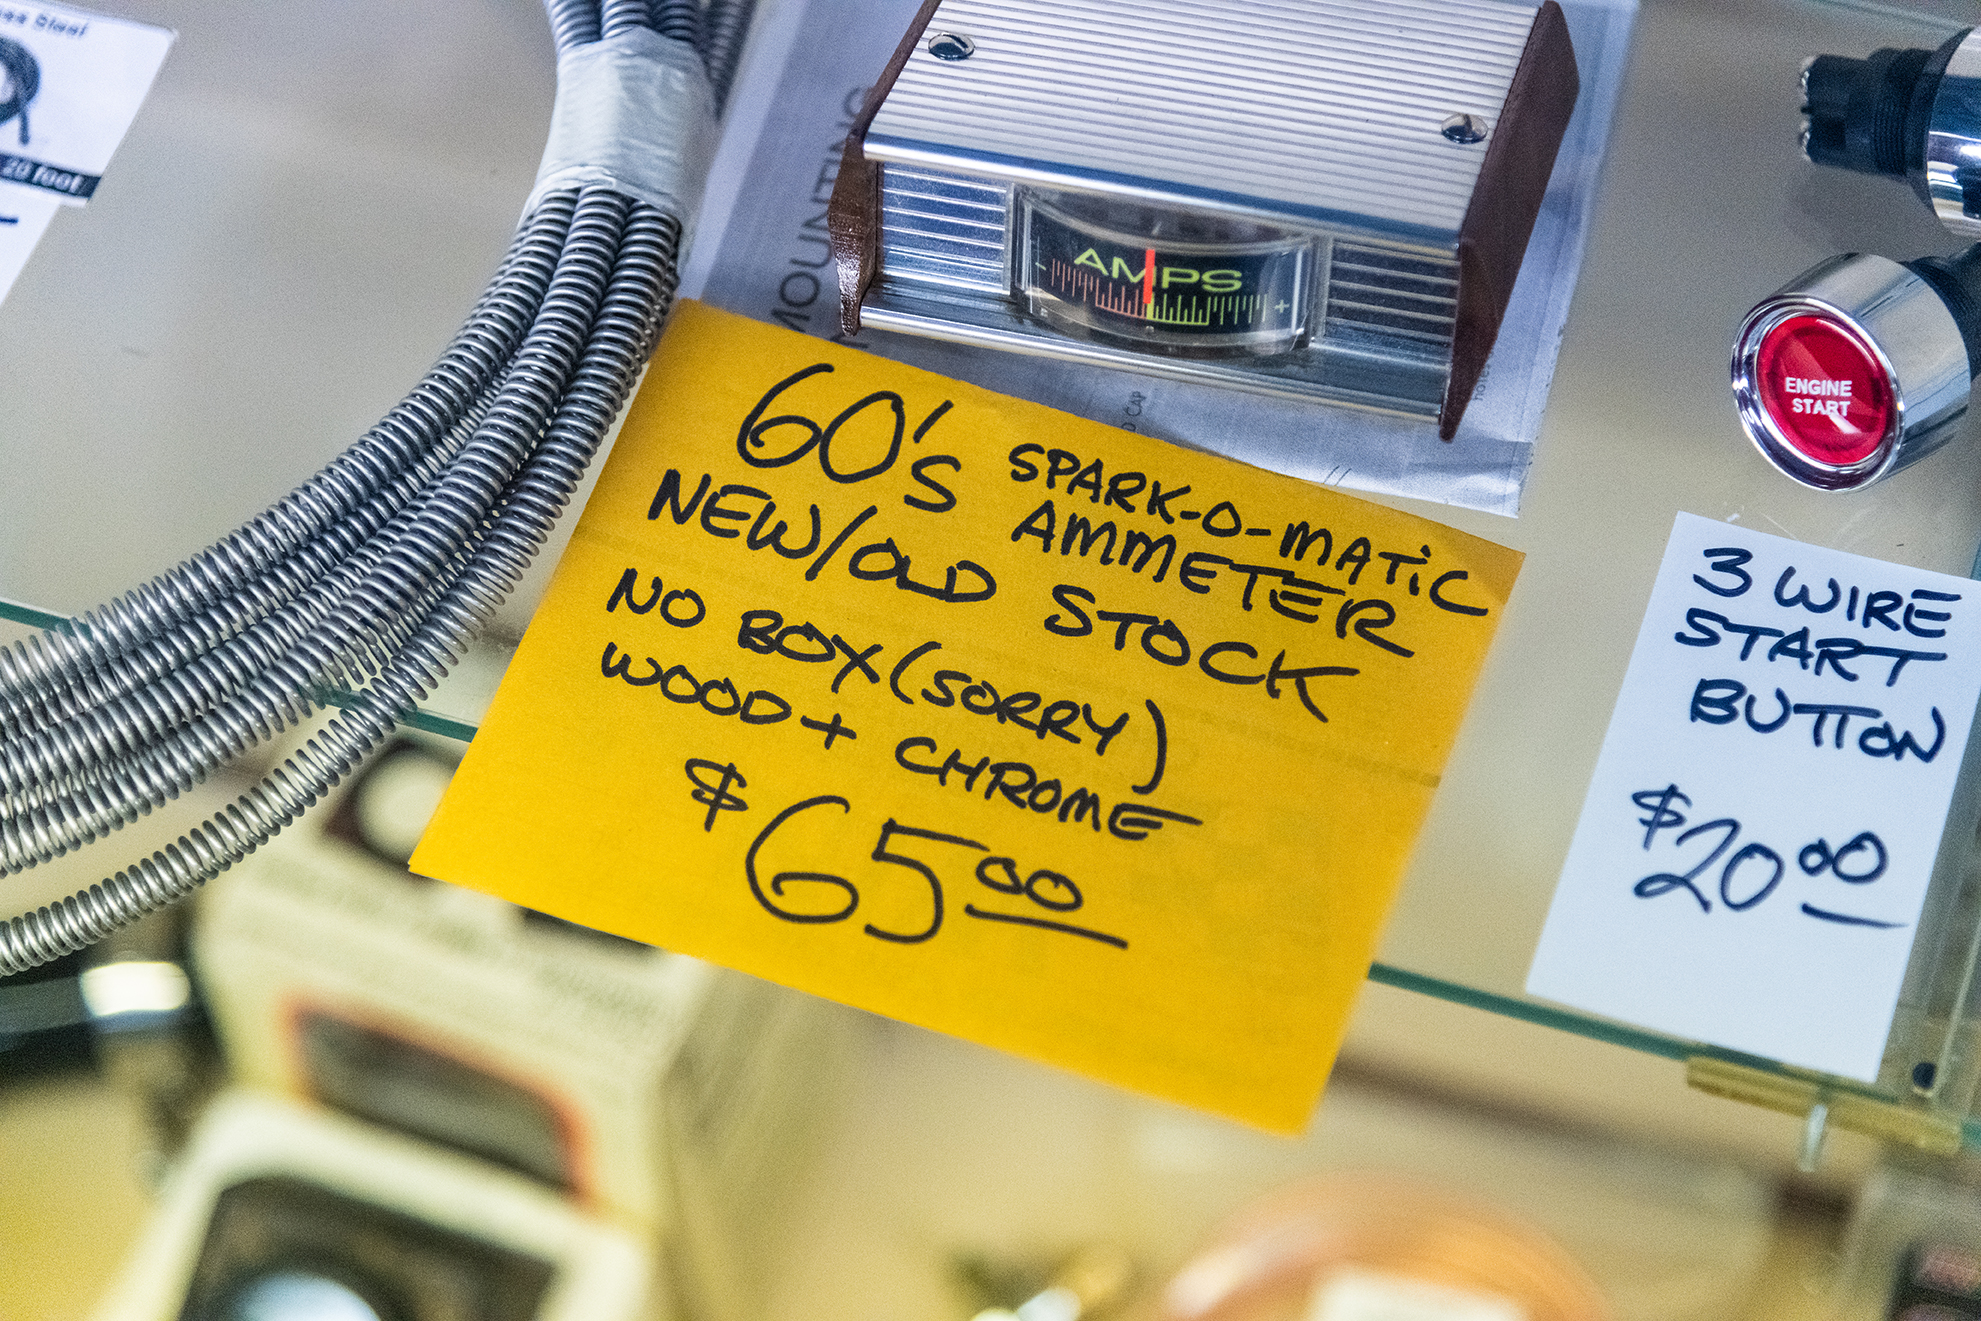 20 foot
MOUNTING
AMPS
- +
ENGINE
START
60's SPARK-O-MATiC
AMMETER
NEW/OLD STOCK
NO BOX (SORRY)
WOOD + CHROME
$65.00
3 WIRE
START
BUTTON
$20.00